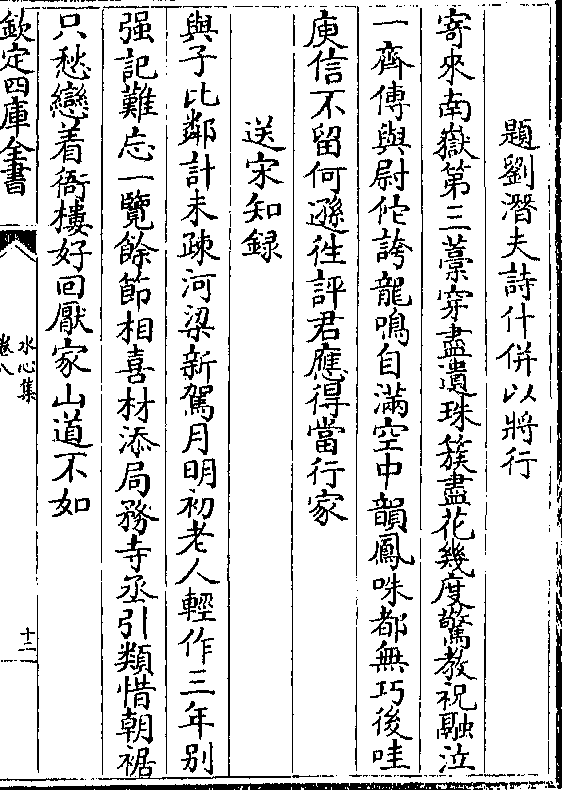 題劉潛夫詩什併以將行
寄來南嶽第三藁穿盡遺珠簇盡花幾度驚教祝融泣
一齊傳與尉佗誇龍鳴自滿空中韻鳳咮都無巧後哇
庾信不留何遜徃評君應得當行家
送宋知録
與子比鄰計未疎河梁新駕月明初老人輕作三年別
强記難忘一覽餘節相喜材添局務寺丞引類惜朝裾
只愁戀着衙樓好回厭家山道不如
欽定四庫全書
水心集
卷八
十二